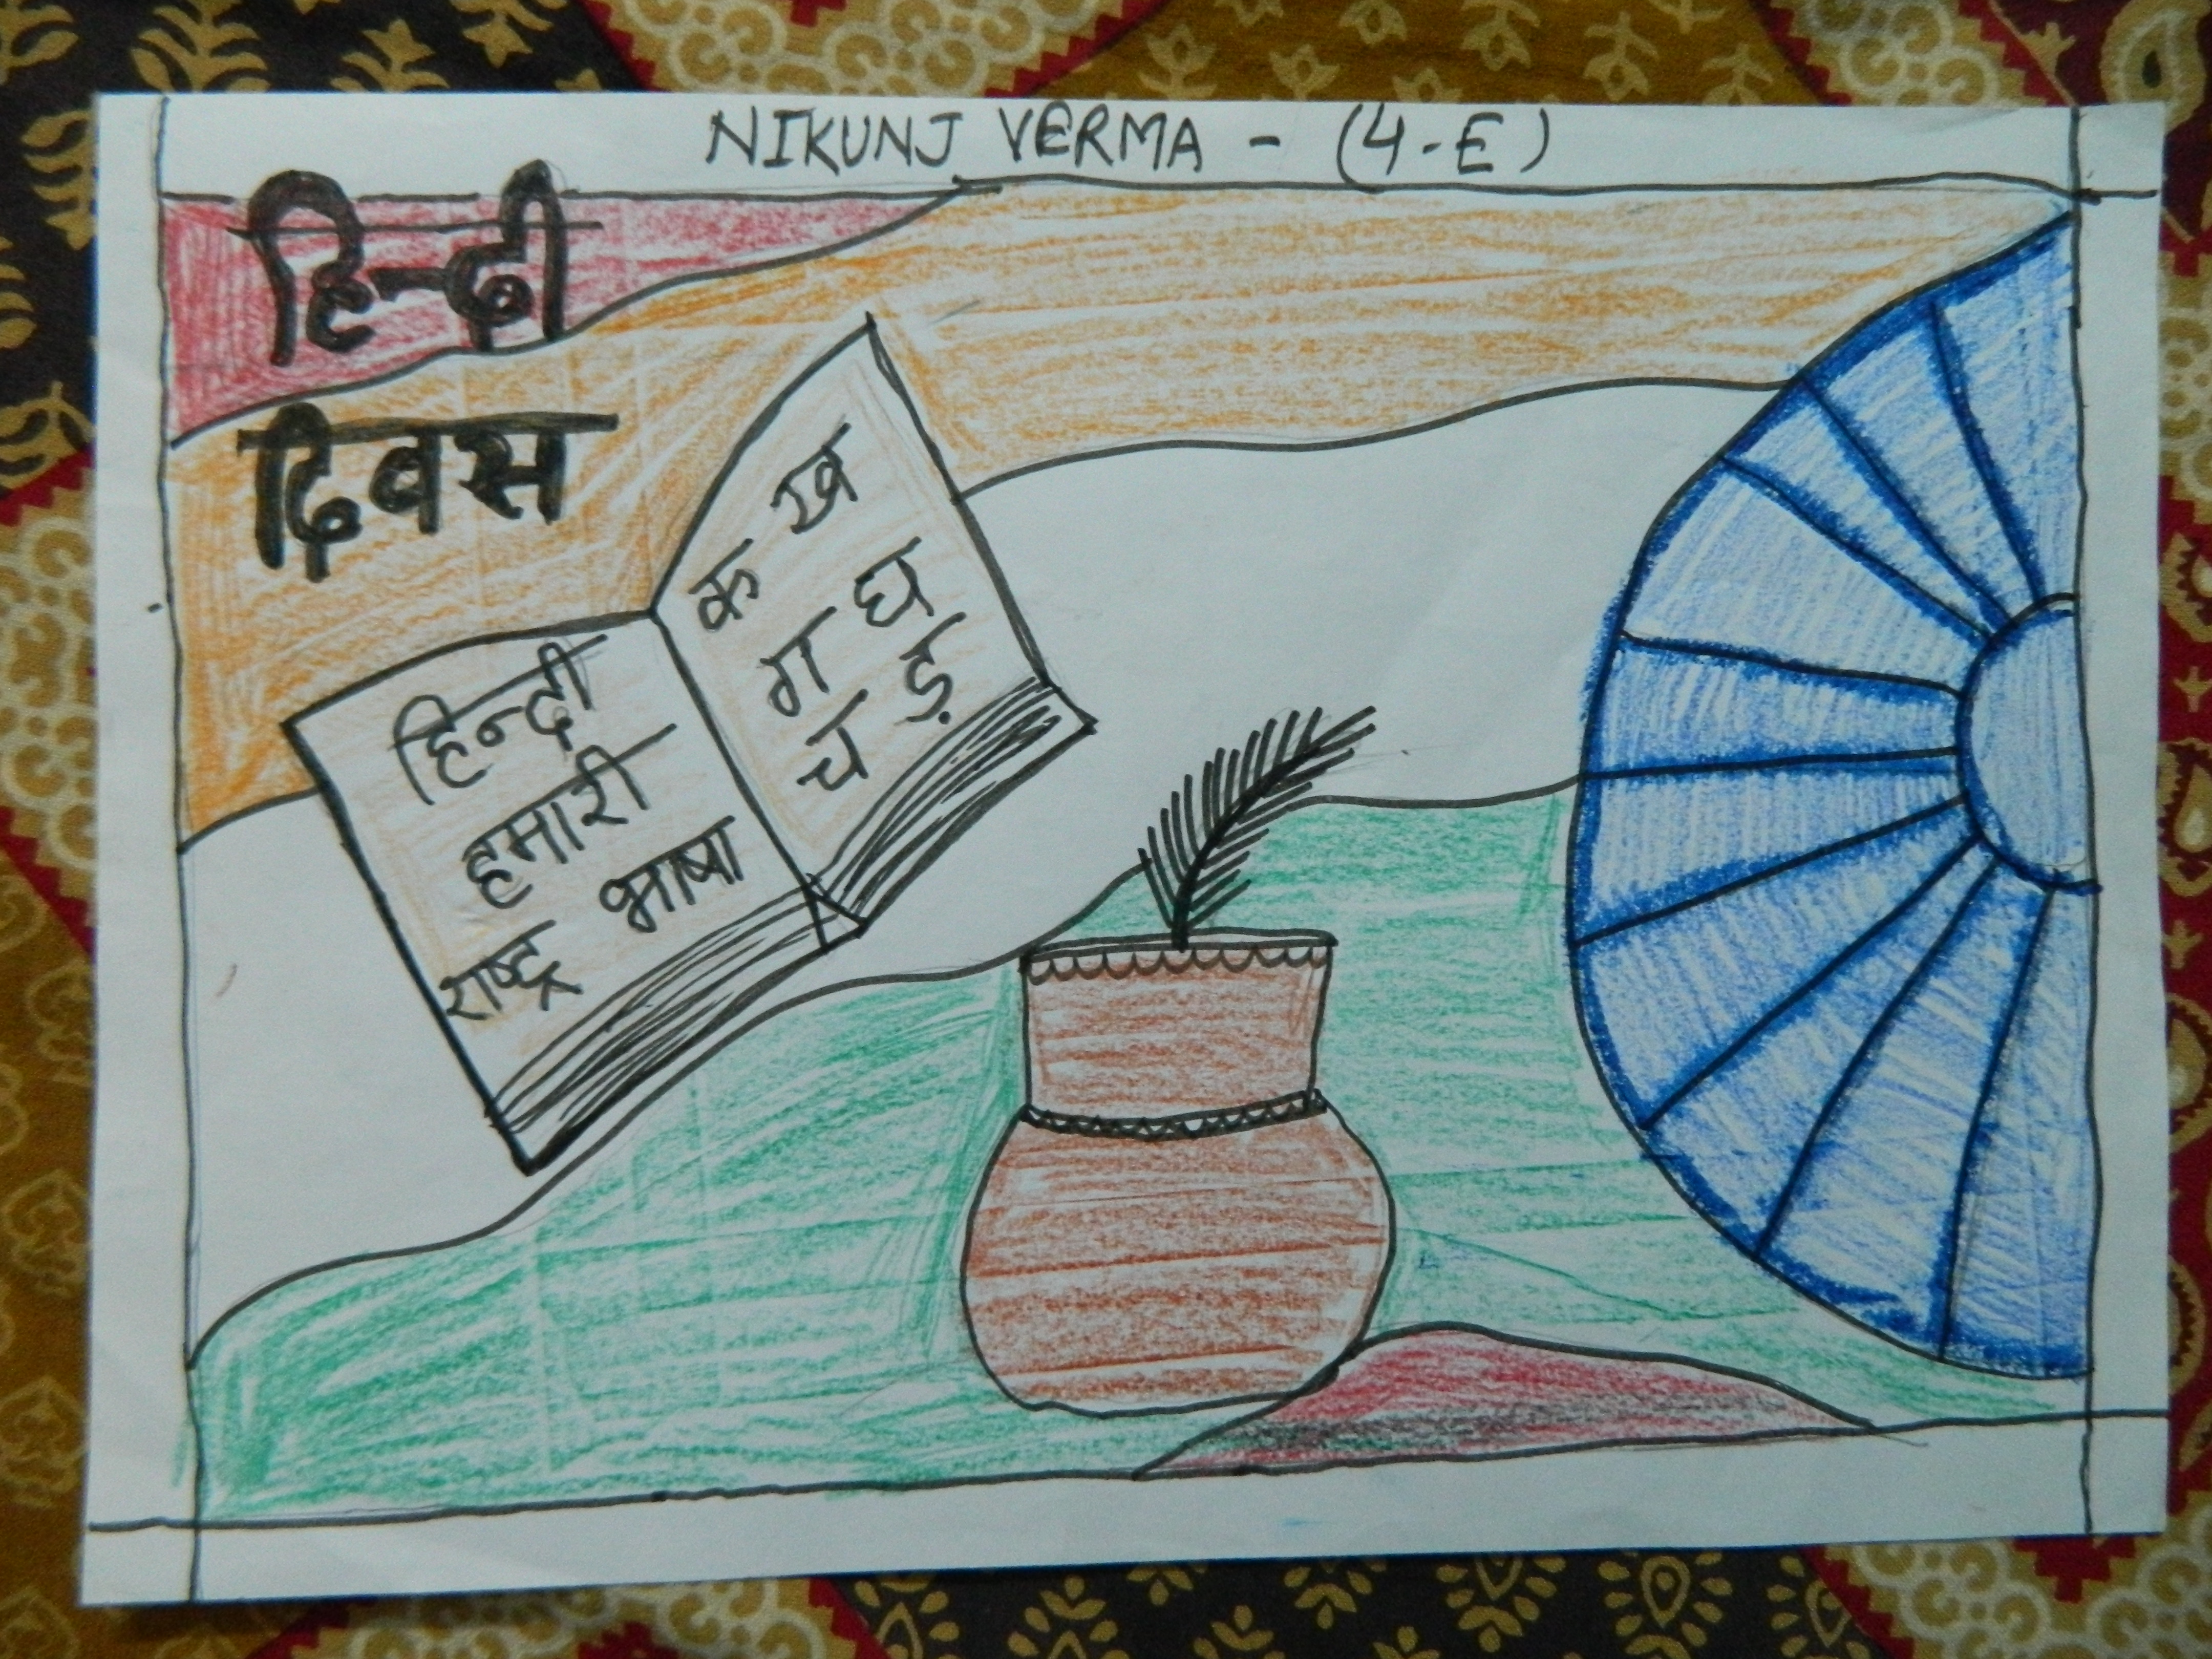 NIKUNJ VERMA - (4-E)
हिन्दी
दिवस
हिन्दी
हमारी
राष्ट्र भाषा
क ख
ग घ
च ड़